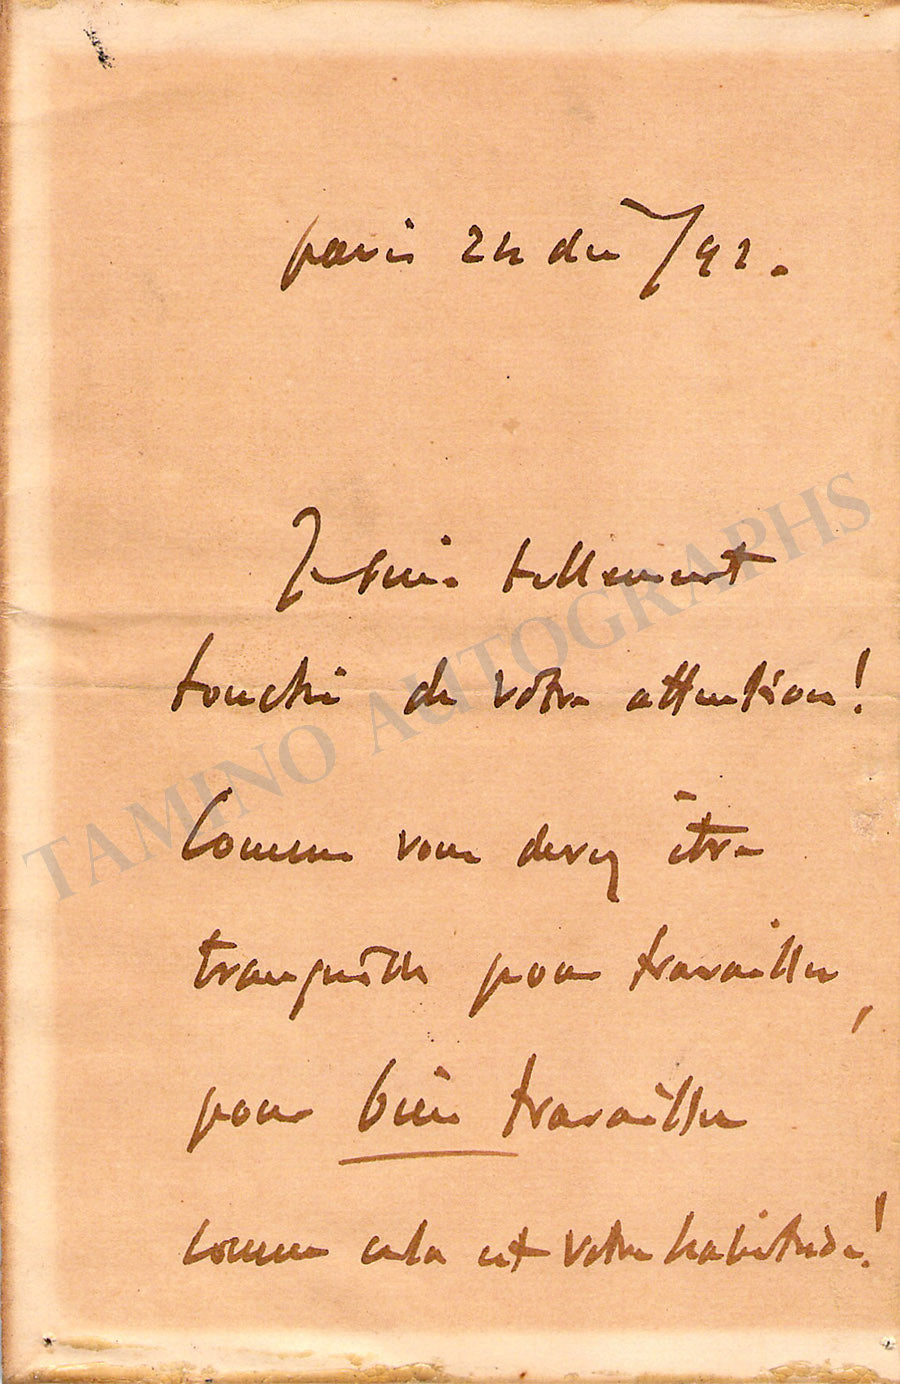 paris 24 déc /92.
Je suis tellement
touché de votre attention!
Comme vous devez être
tranquille pour travailler,
pour bien travailler
comme cela est votre habitude!
TAMINO AUTOGRAPHS